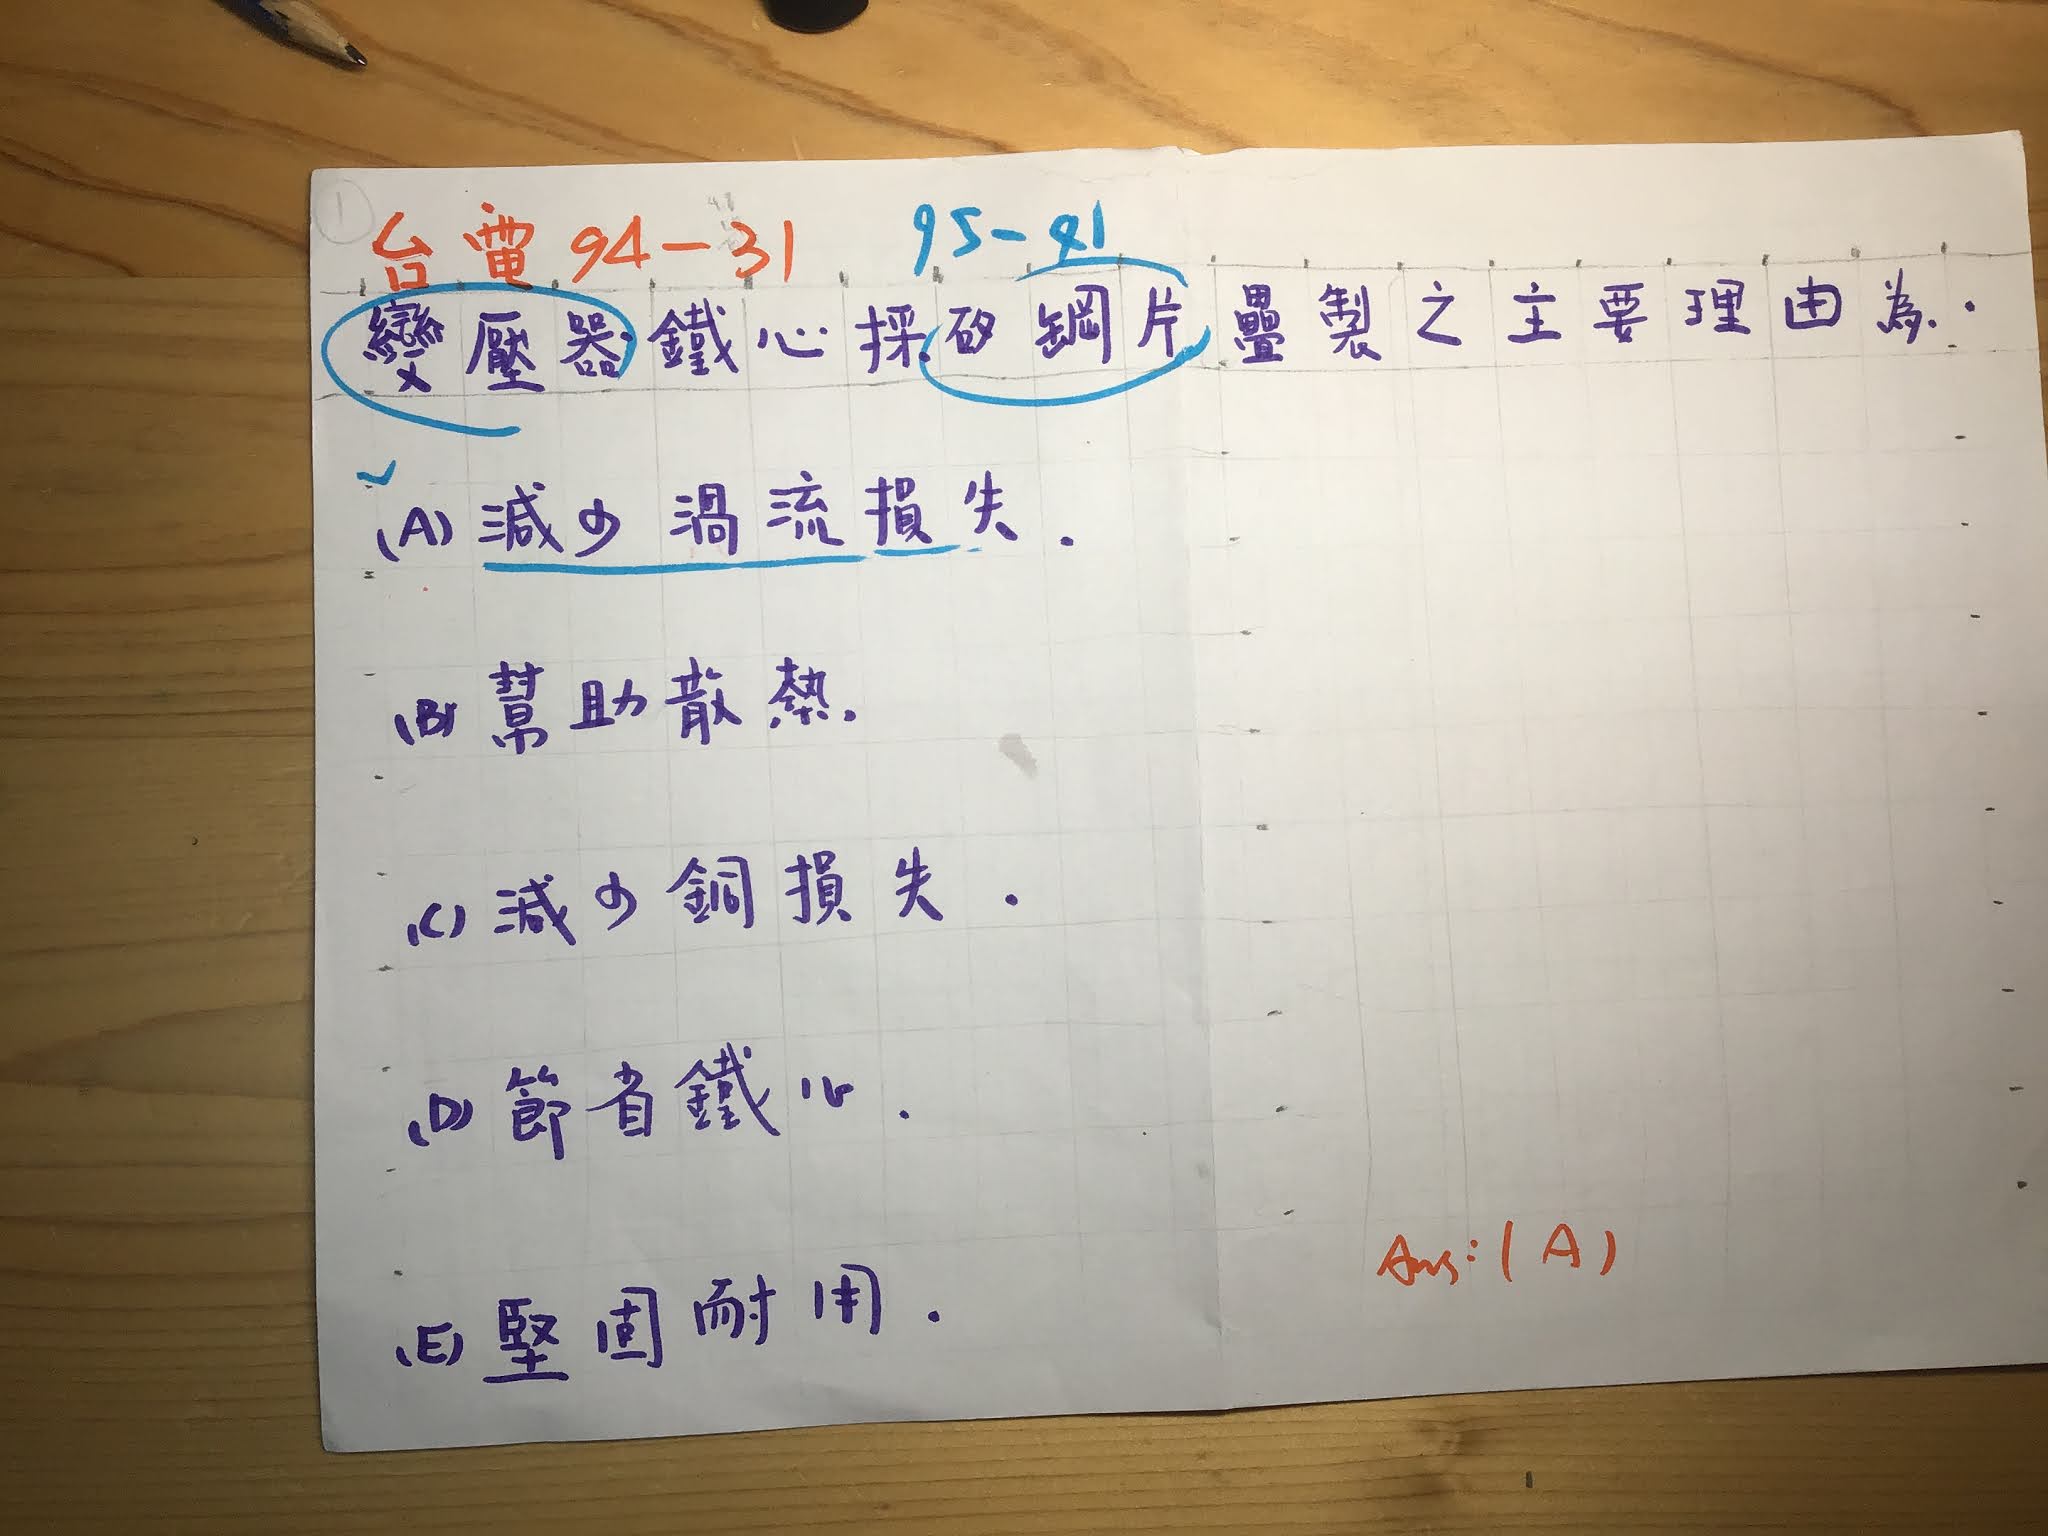 ①
台電 94-31 95-41
變壓器鐵心採矽鋼片疊製之主要理由為..
(A) 減少渦流損失.
(B) 幫助散熱.
(C) 減少銅損失.
(D) 節省鐵心.
(E) 堅固耐用.
Ans:(A)